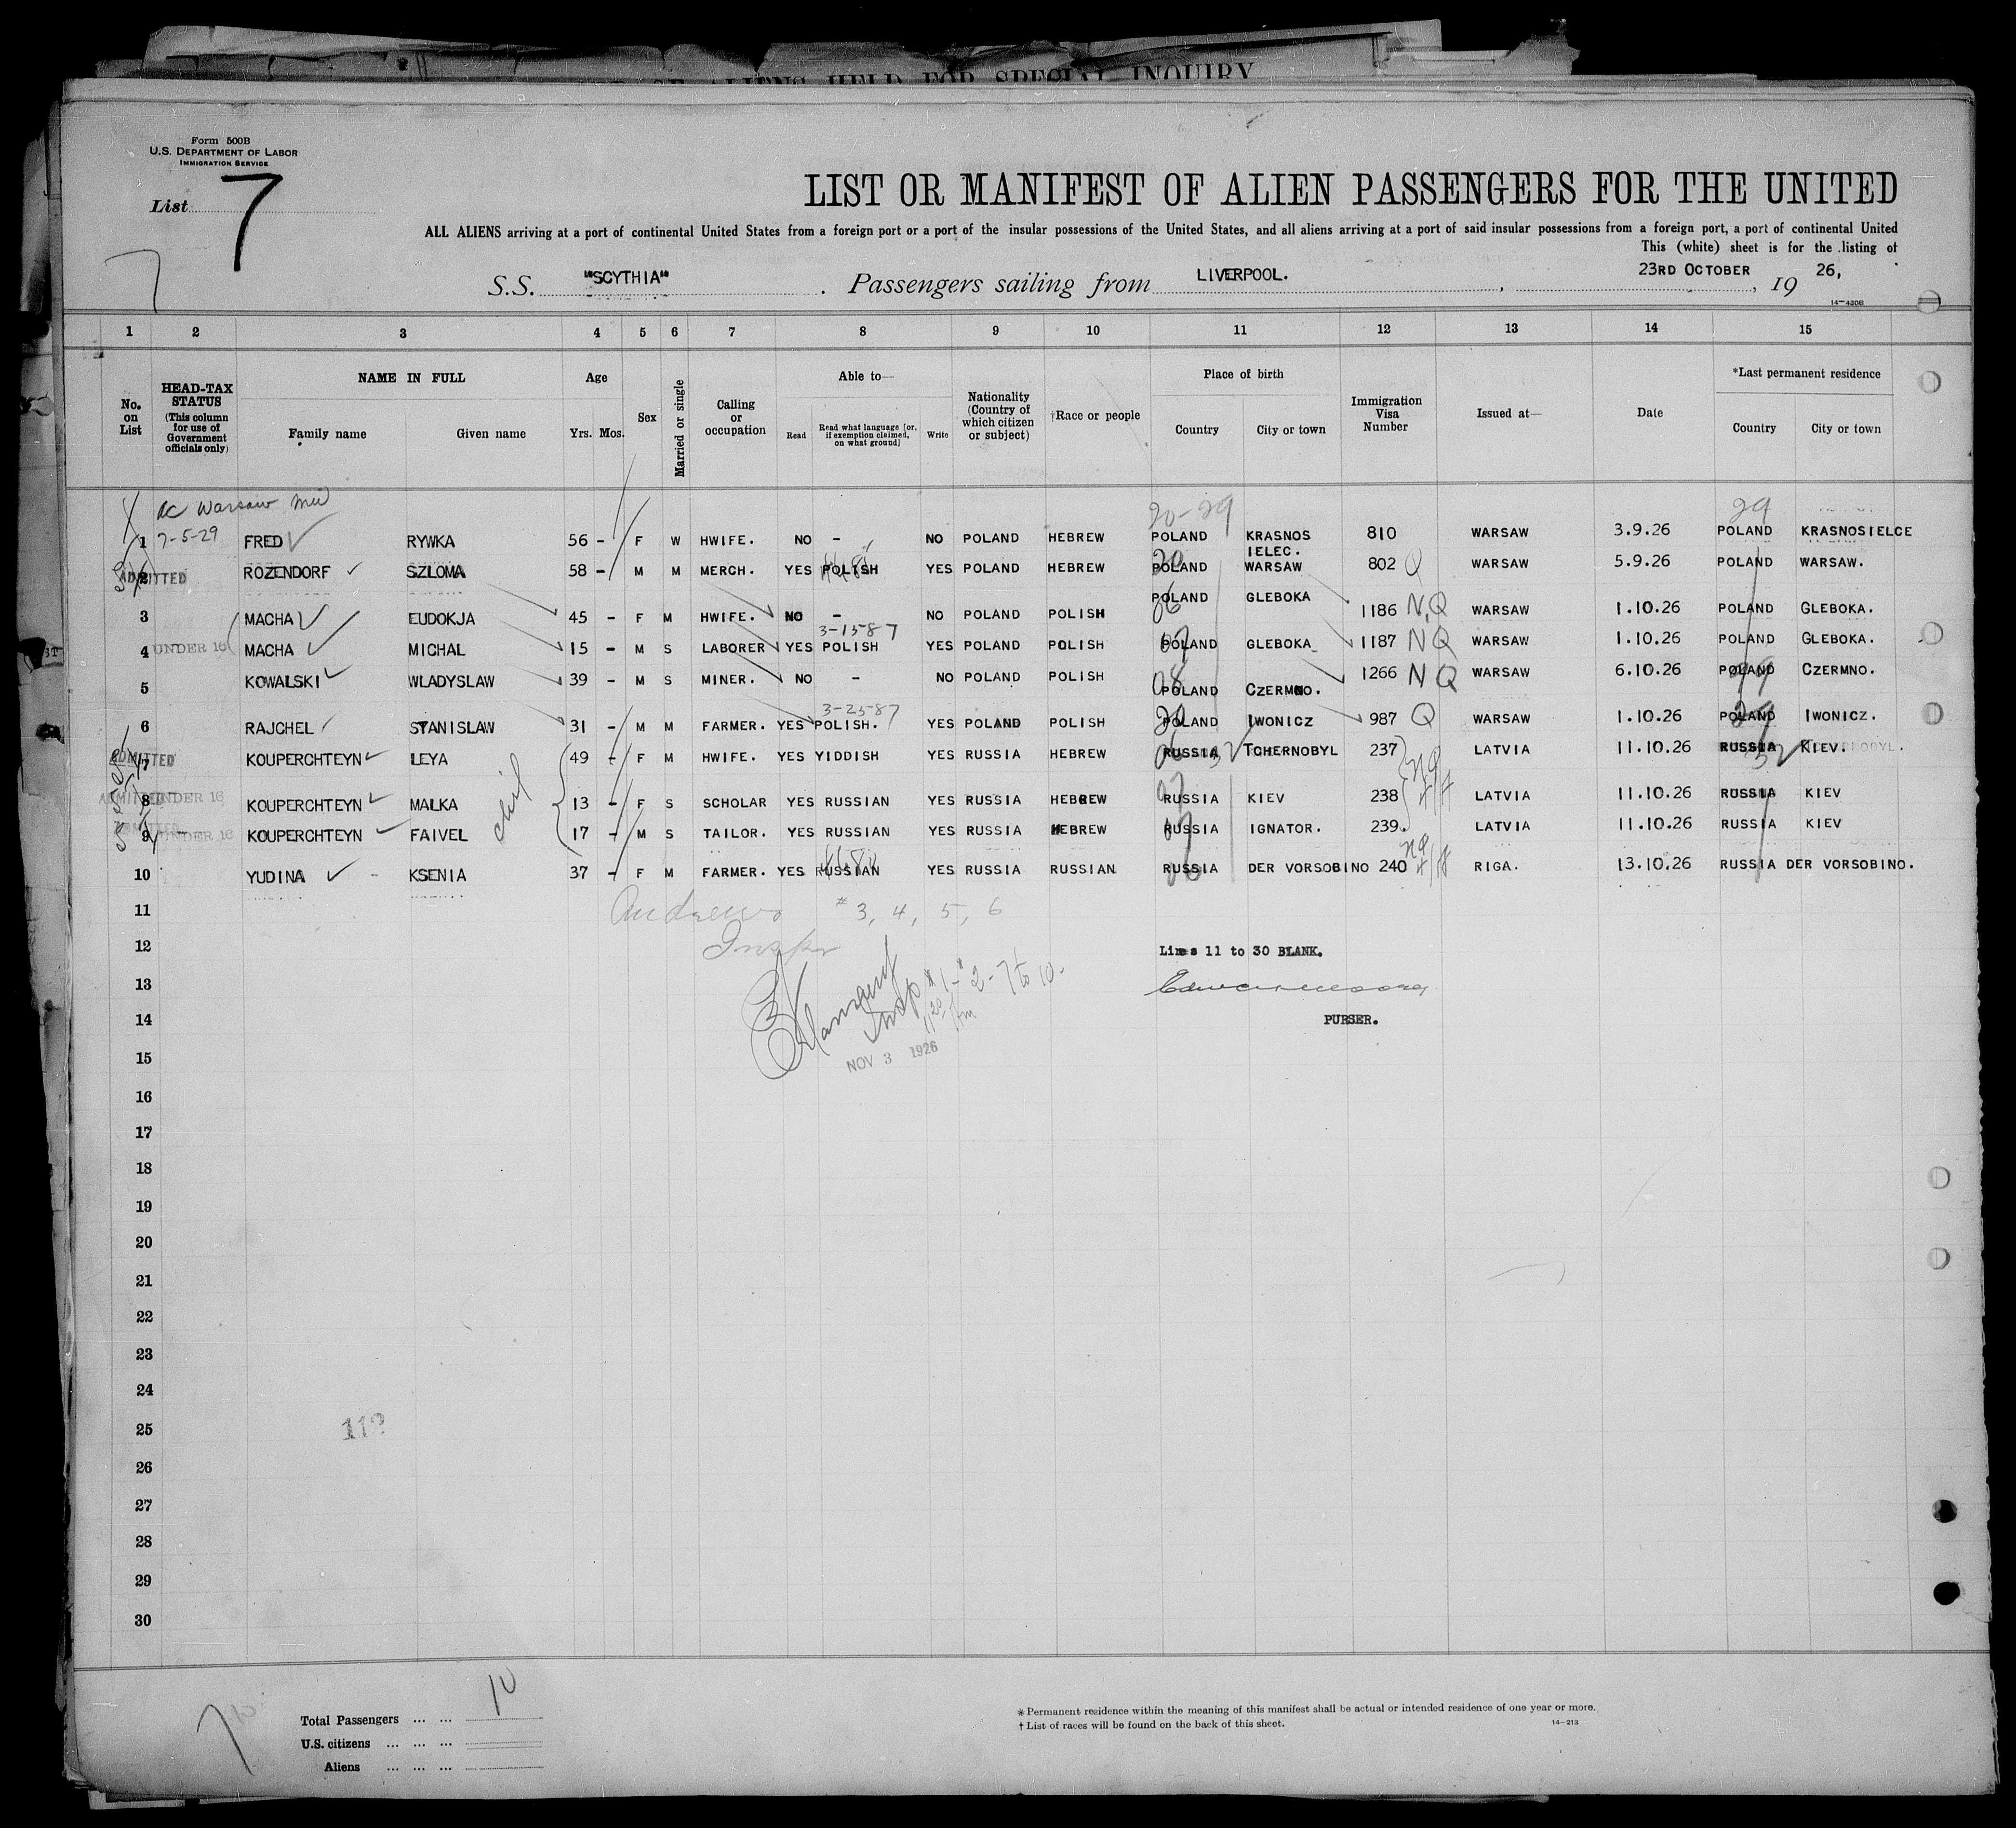 OF ALIENS HELD FOR SPECIAL INQUIRY
Form 500B
U.S. DEPARTMENT OF LABOR
IMMIGRATION SERVICE
List 7
7
LIST OR MANIFEST OF ALIEN PASSENGERS FOR THE UNITED
ALL ALIENS arriving at a port of continental United States from a foreign port or a port of the insular possessions of the United States, and all aliens arriving at a port of said insular possessions from a foreign port, a port of continental United
This (white) sheet is for the listing of
S.S. "SCYTHIA" . Passengers sailing from LIVERPOOL. , 23RD OCTOBER , 19 26,
14—430B
1 2 3 4 5 6 7 8 9 10 11 12 13 14 15
No. on List
HEAD-TAX STATUS (This column for use of Government officials only)
NAME IN FULL
Family name Given name
Age
Yrs. Mos.
Sex
Married or single
Calling or occupation
Able to—
Read Read what language [or, if exemption claimed, on what ground] Write
Nationality (Country of which citizen or subject)
†Race or people
Place of birth
Country City or town
Immigration Visa Number
Issued at—
Date
*Last permanent residence
Country City or town
AC Warsaw 20-29 29
1 7-5-29 FRED RYWKA 56 - F W HWIFE. NO - NO POLAND HEBREW POLAND KRASNOS IELEC. 810 WARSAW 3.9.26 POLAND KRASNOSIELCE
2 ADMITTED ROZENDORF SZLOMA 58 - M M MERCH. YES POLISH YES POLAND HEBREW POLAND WARSAW 802 Q WARSAW 5.9.26 POLAND WARSAW.
3 MACHA EUDOKJA 45 - F M HWIFE. NO - NO POLAND POLISH POLAND GLEBOKA 1186 N.Q WARSAW 1.10.26 POLAND GLEBOKA.
3-1587
4 UNDER 16 MACHA MICHAL 15 - M S LABORER YES POLISH YES POLAND POLISH POLAND GLEBOKA 1187 NQ WARSAW 1.10.26 POLAND GLEBOKA.
5 KOWALSKI WLADYSLAW 39 - M S MINER. NO - NO POLAND POLISH POLAND CZERMNO. 1266 NQ WARSAW 6.10.26 POLAND CZERMNO.
3-2587
6 RAJCHEL STANISLAW 31 - M M FARMER. YES POLISH. YES POLAND POLISH POLAND IWONICZ 987 Q WARSAW 1.10.26 POLAND IWONICZ.
7 ADMITTED KOUPERCHTEYN LEYA 49 - F M HWIFE. YES YIDDISH YES RUSSIA HEBREW RUSSIA TCHERNOBYL 237 LATVIA 11.10.26 RUSSIA KIEV.
8 ADMITTED UNDER 16 KOUPERCHTEYN MALKA 13 - F S SCHOLAR YES RUSSIAN YES RUSSIA HEBREW RUSSIA KIEV 238 LATVIA 11.10.26 RUSSIA KIEV
9 ADMITTED UNDER 16 KOUPERCHTEYN FAIVEL 17 - M S TAILOR. YES RUSSIAN YES RUSSIA HEBREW RUSSIA IGNATOR. 239. LATVIA 11.10.26 RUSSIA KIEV
10 YUDINA KSENIA 37 - F M FARMER. YES RUSSIAN YES RUSSIA RUSSIAN RUSSIA DER VORSOBINO 240 RIGA. 13.10.26 RUSSIA DER VORSOBINO.
11 Andrews # 3, 4, 5, 6
12 Inspr Lines 11 to 30 BLANK.
13 Insp #1-#2-7 to 10.
14 PURSER.
15 NOV 3 1926
16
17
18
19
20
21
22
23
24
25
26
27
28
29
30
Total Passengers ... ... 10
U.S. citizens ... ... ...
Aliens ... ... ...
7
* Permanent residence within the meaning of this manifest shall be actual or intended residence of one year or more.
† List of races will be found on the back of this sheet.
14—213